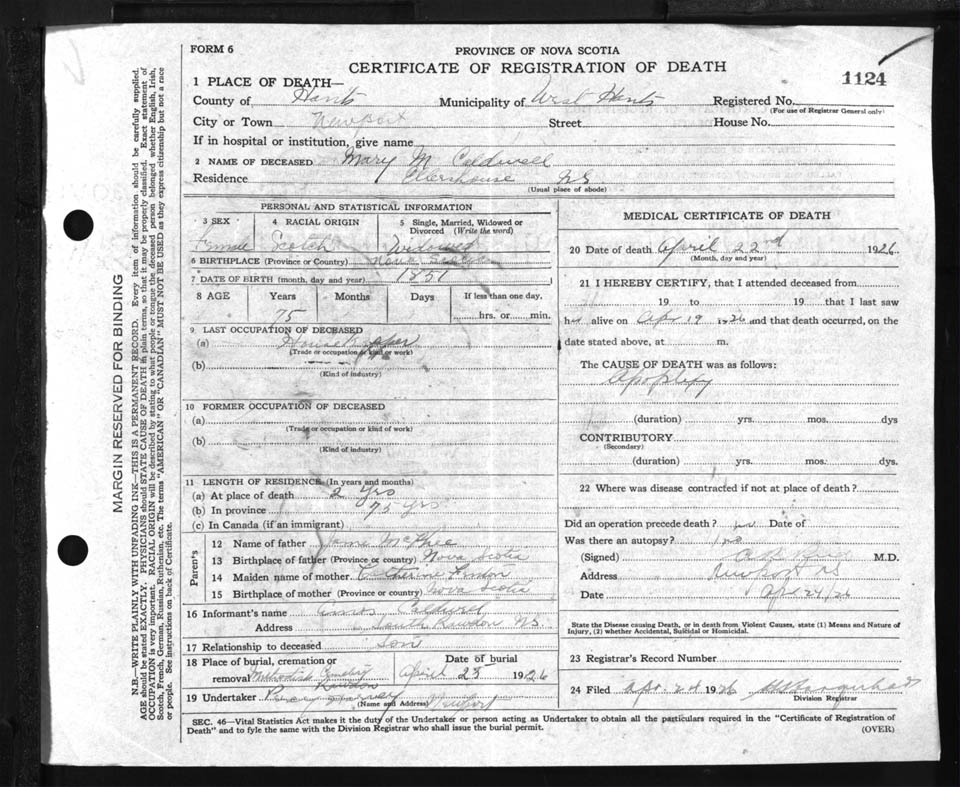 FORM 6
PROVINCE OF NOVA SCOTIA
CERTIFICATE OF REGISTRATION OF DEATH
1124
1 PLACE OF DEATH—
County of Hants Municipality of West Hants Registered No.
(For use of Registrar General only)
City or Town Newport Street House No.
If in hospital or institution, give name
2 NAME OF DECEASED Mary M Caldwell
Residence Ellershouse NS
(Usual place of abode)
PERSONAL AND STATISTICAL INFORMATION
3 SEX 4 RACIAL ORIGIN 5 Single, Married, Widowed or Divorced (Write the word)
Female Scotch Widowed
6 BIRTHPLACE (Province or Country) Nova Scotia
7 DATE OF BIRTH (month, day and year) 1851
8 AGE Years Months Days If less than one day,
75 hrs. or min.
9 LAST OCCUPATION OF DECEASED
(a) House Keeper
(Trade or occupation or kind or work)
(b)
(Kind of industry)
10 FORMER OCCUPATION OF DECEASED
(a)
(Trade or occupation or kind of work)
(b)
(Kind of industry)
11 LENGTH OF RESIDENCE (In years and months)
(a) At place of death 2 yrs
(b) In province 75 yrs
(c) In Canada (if an immigrant)
Parent's
12 Name of father James McPhee
13 Birthplace of father (Province or country) Nova Scotia
14 Maiden name of mother Catherine
15 Birthplace of mother (Province or country) Nova Scotia
16 Informant's name Amos Caldwell
Address South Rawdon NS
17 Relationship to deceased Son
18 Place of burial, cremation or removal Methodist Cemetery Rawdon
Date of burial April 23 1926
19 Undertaker Percy Harvey Newport
(Name and Address)
MEDICAL CERTIFICATE OF DEATH
20 Date of death April 22nd 1926
(Month, day and year)
21 I HEREBY CERTIFY, that I attended deceased from
19 to 19 that I last saw
her alive on Apr 19 1926 and that death occurred, on the
date stated above, at m.
The CAUSE OF DEATH was as follows:
Apoplexy
(duration) yrs. mos. dys
CONTRIBUTORY
(Secondary)
(duration) yrs. mos. dys.
22 Where was disease contracted if not at place of death?
Did an operation precede death? no Date of
Was there an autopsy? no
(Signed) M.D.
Address Newport NS
Date Apr 24/26
State the Disease causing Death, or in death from Violent Causes, state (1) Means and Nature of
Injury, (2) whether Accidental, Suicidal or Homicidal.
23 Registrar's Record Number
24 Filed Apr 24 1926
Division Registrar
SEC. 46—Vital Statistics Act makes it the duty of the Undertaker or person acting as Undertaker to obtain all the particulars required in the "Certificate of Registration of
Death" and to fyle the same with the Division Registrar who shall issue the burial permit.
(OVER)
MARGIN RESERVED FOR BINDING
N.B.—WRITE PLAINLY WITH UNFADING INK—THIS IS A PERMANENT RECORD. Every item of information should be carefully supplied.
AGE should be stated EXACTLY. PHYSICIANS should STATE CAUSE OF DEATH in plain terms, so that it may be properly classified. Exact statement of
OCCUPATION is very important. RACIAL ORIGIN will be described by stating to what people or tongue the deceased person belonged whether English, Irish,
Scotch, French, German, Russian, Ruthenian, etc. The terms "AMERICAN" OR "CANADIAN" MUST NOT BE USED as they express citizenship but not a race
or people. See instructions on back of Certificate.